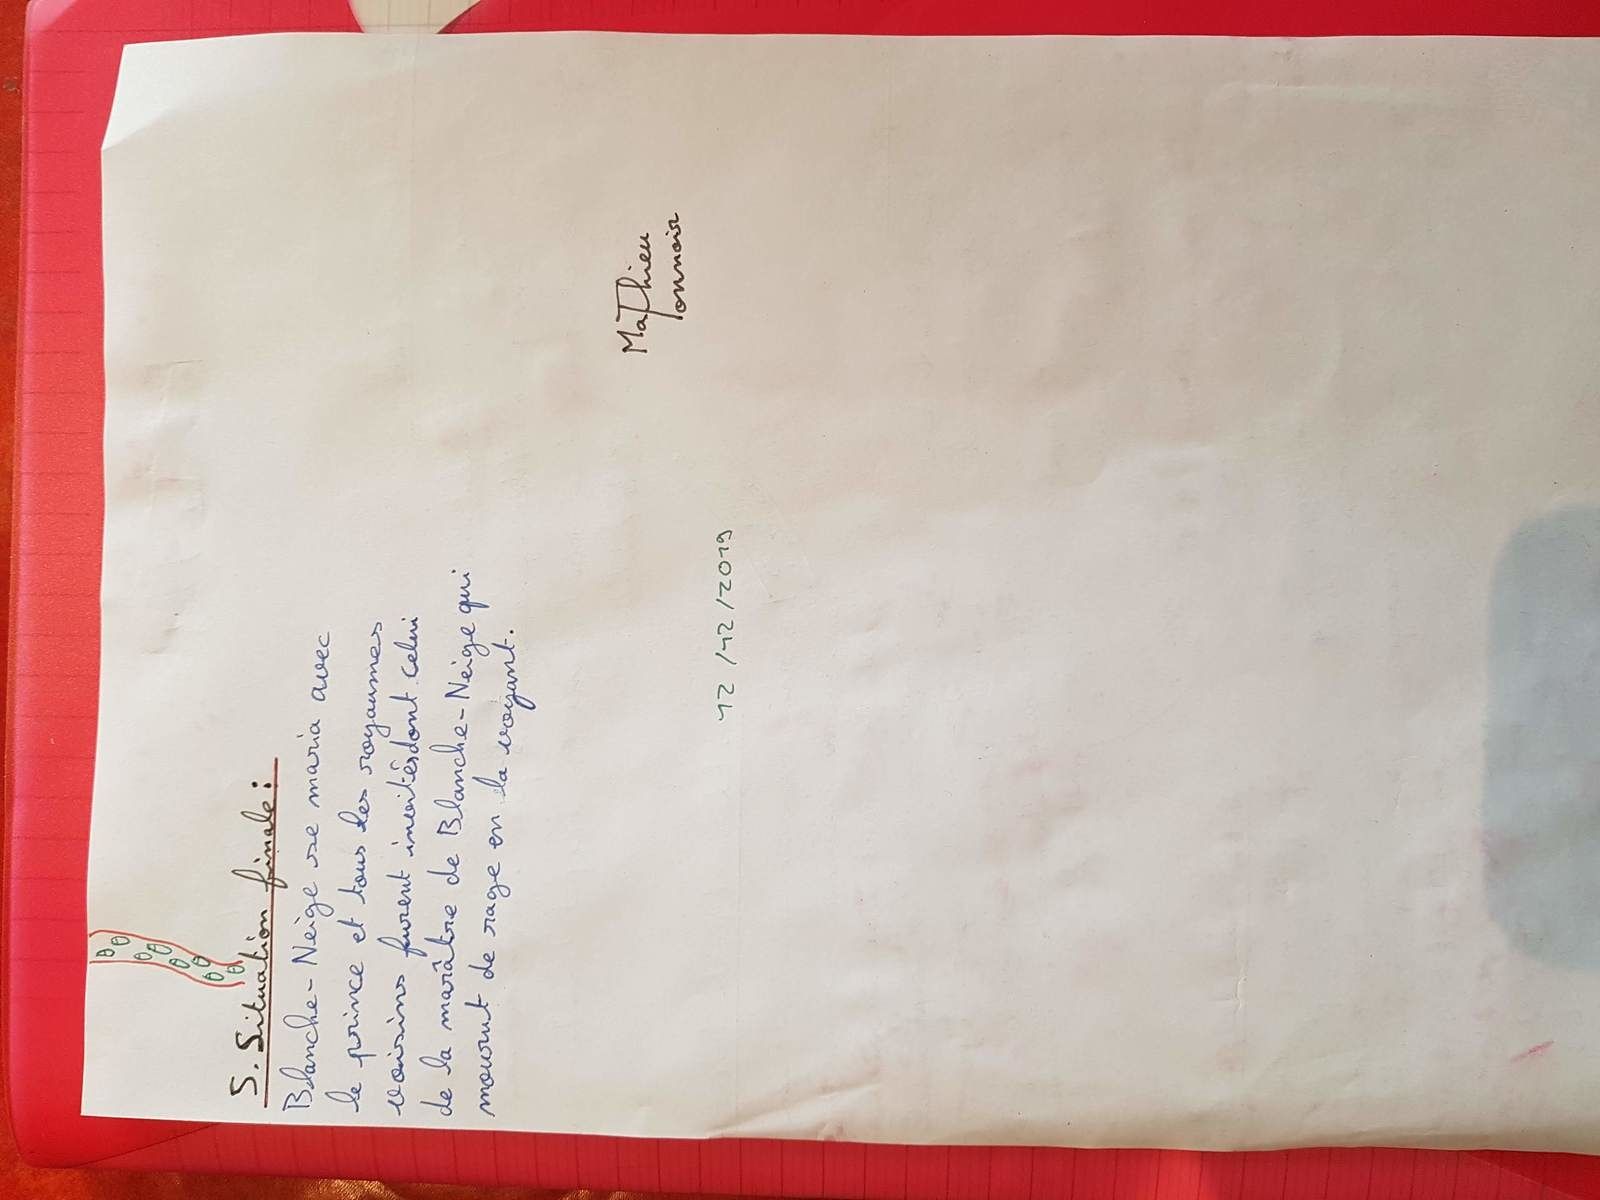 5. Situation finale:
Blanche-Neige se maria avec
le prince et tous les royaumes
voisins furent invités dont celui
de la marâtre de Blanche-Neige qui
mourut de rage en la voyant.
Mathieu
12/12/2019